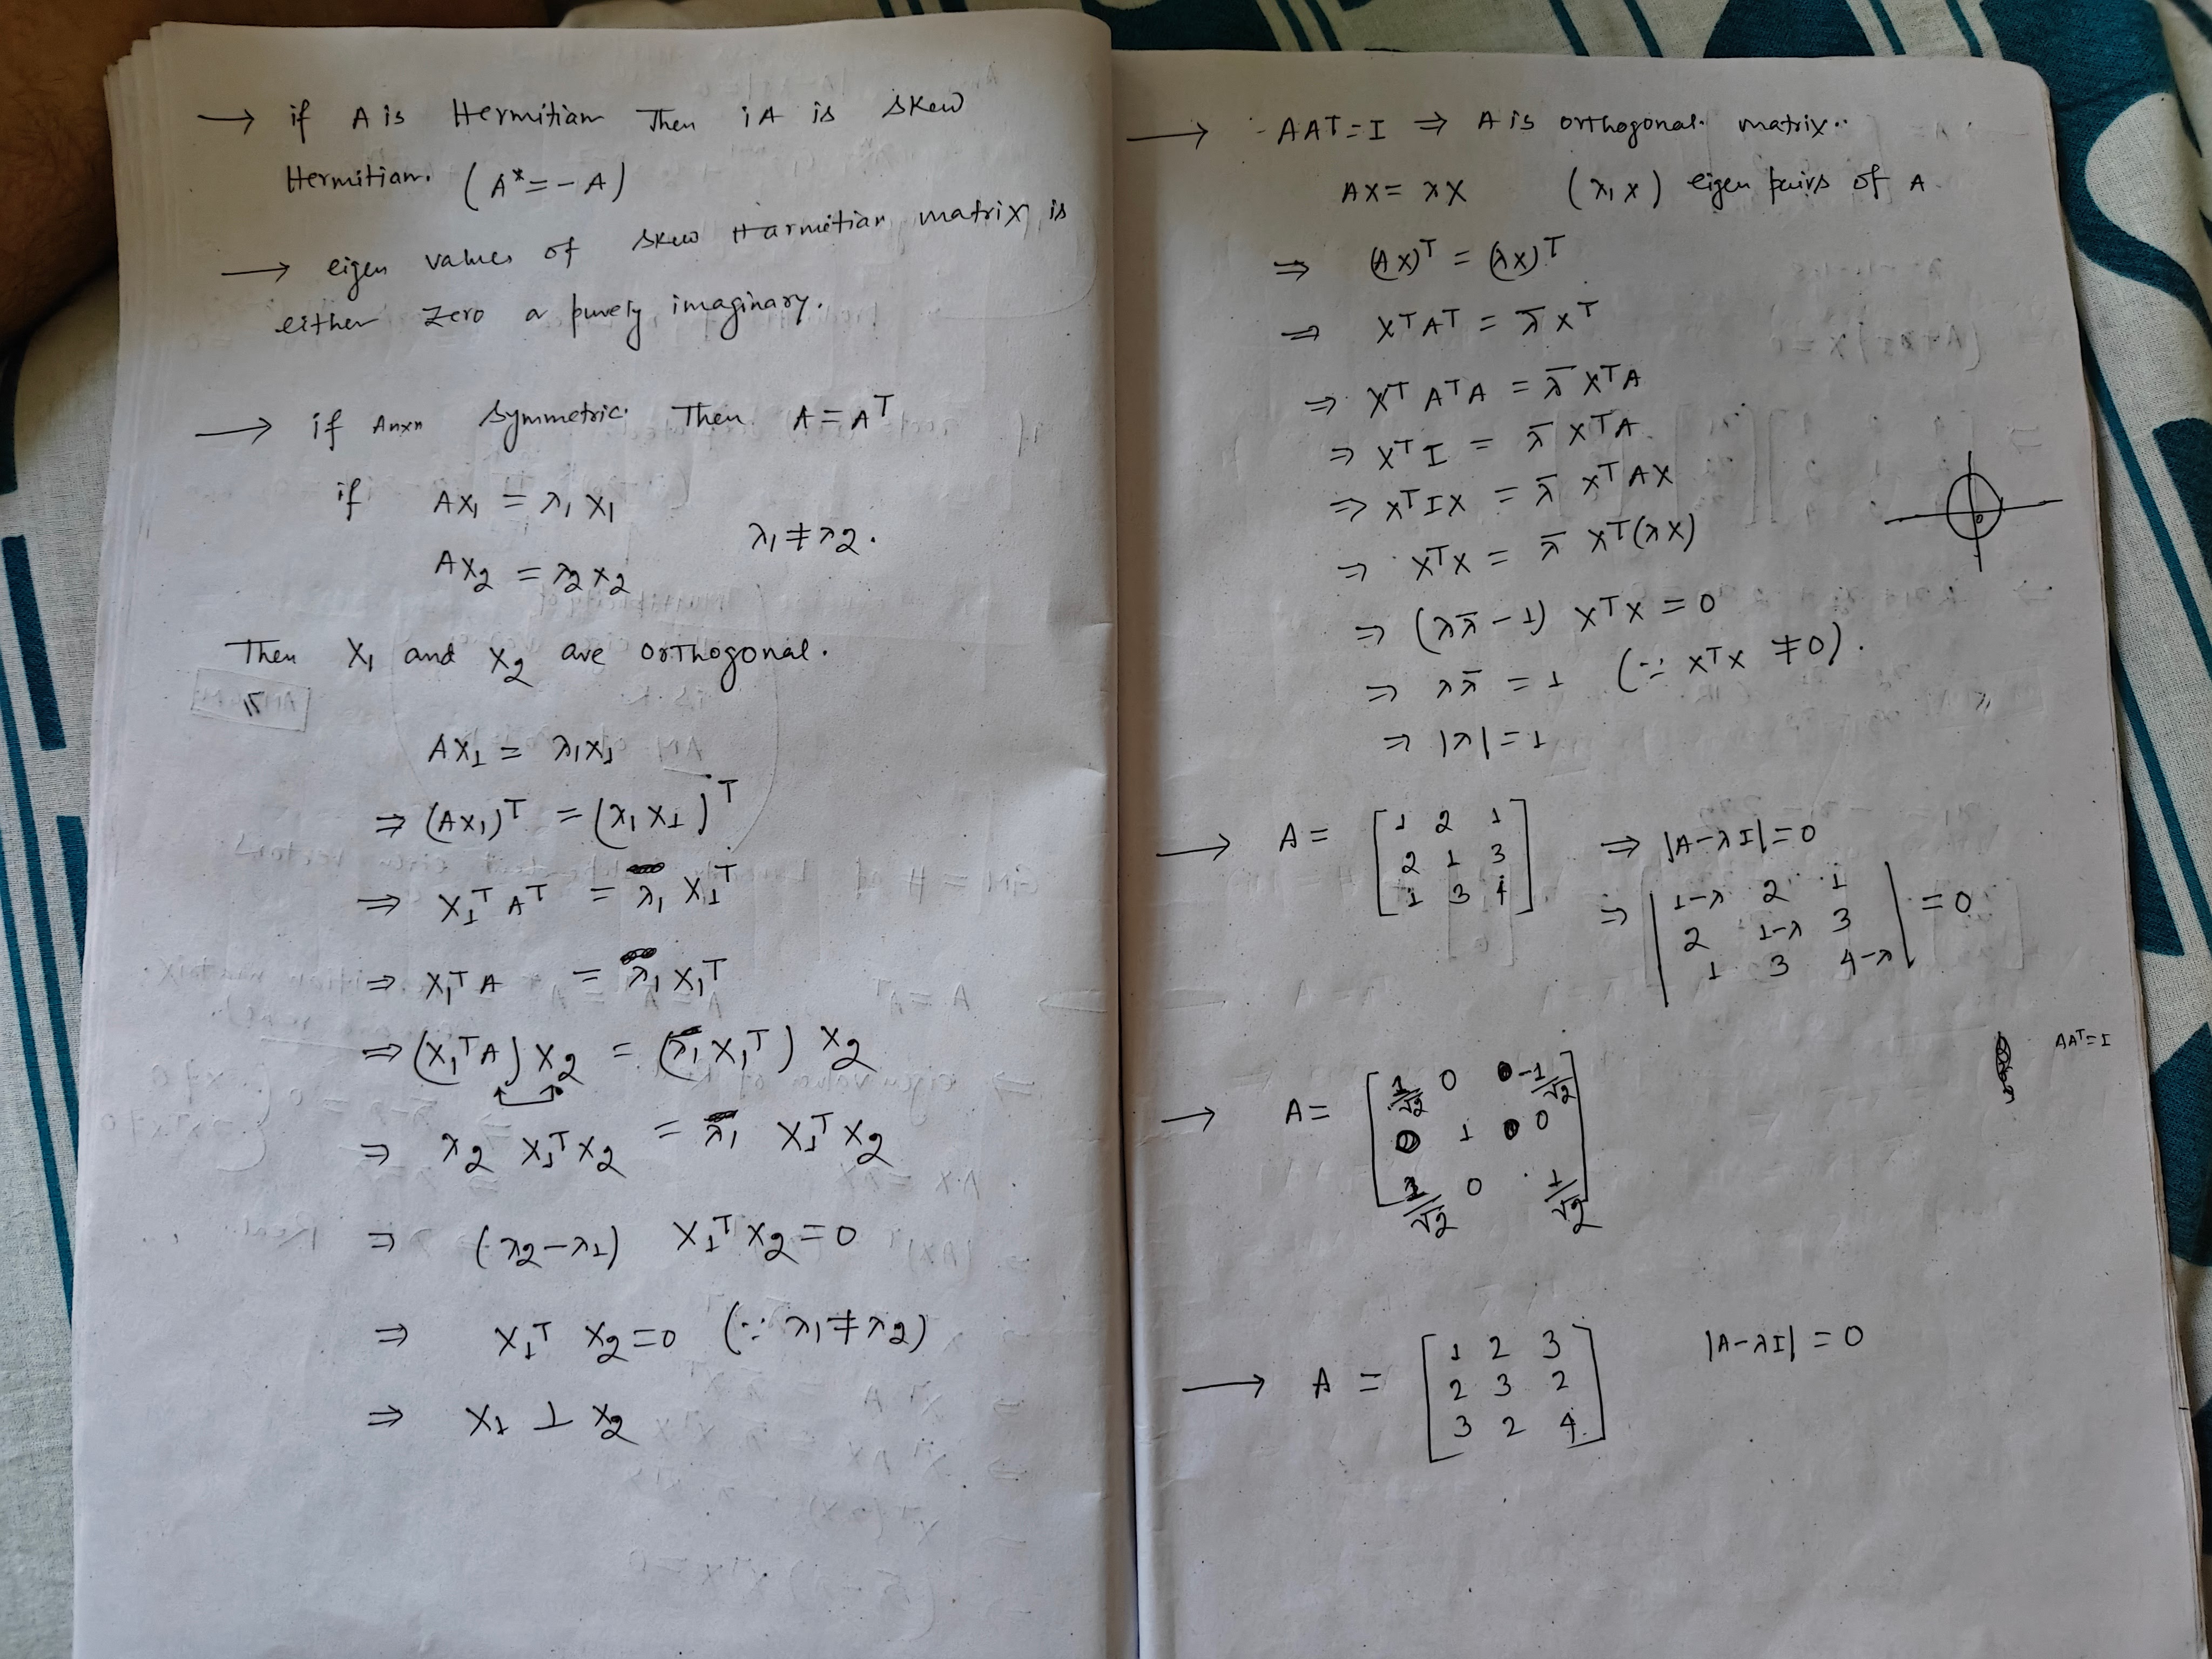 → if A is Hermitian Then iA is skew
Hermitian. (A* = -A)
→ eigen values of skew Harmitian matrix is
either zero a purely imaginary.
→ if Anxn symmetric. Then A = Aᵀ
if AX₁ = λ₁ X₁
λ₁ ≠ λ₂.
AX₂ = λ₂ X₂
Then X₁ and X₂ are orthogonal.
AX₁ = λ₁X₁
⇒ (AX₁)ᵀ = (λ₁ X₁)ᵀ
⇒ X₁ᵀ Aᵀ = λ₁ X₁ᵀ
⇒ X₁ᵀ A = λ₁ X₁ᵀ
⇒ (X₁ᵀ A) X₂ = (λ₁ X₁ᵀ) X₂
⇒ λ₂ X₁ᵀ X₂ = λ₁ X₁ᵀ X₂
⇒ (λ₂ - λ₁) X₁ᵀ X₂ = 0
⇒ X₁ᵀ X₂ = 0 (∵ λ₁ ≠ λ₂)
⇒ X₁ ⊥ X₂
→ AAᵀ = I ⇒ A is orthogonal matrix..
AX = λX (λ, X) eigen pairs of A.
⇒ (AX)ᵀ = (λX)ᵀ
⇒ XᵀAᵀ = λ̄ Xᵀ
⇒ Xᵀ AᵀA = λ̄ XᵀA
⇒ Xᵀ I = λ̄ XᵀA
⇒ XᵀIX = λ̄ XᵀAX
⇒ XᵀX = λ̄ Xᵀ(λX)
⇒ (λλ̄ - 1) XᵀX = 0
⇒ λλ̄ = 1 (∵ XᵀX ≠ 0).
⇒ |λ| = 1
→ A = [1 2 1
2 1 3
1 3 4]
⇒ |A - λI| = 0
⇒ |1-λ 2 1
2 1-λ 3
1 3 4-λ| = 0
AAᵀ = I
→ A = [1/√2 0 -1/√2
0 1 0
1/√2 0 1/√2]
→ A = [1 2 3
2 3 2
3 2 4]
|A - λI| = 0